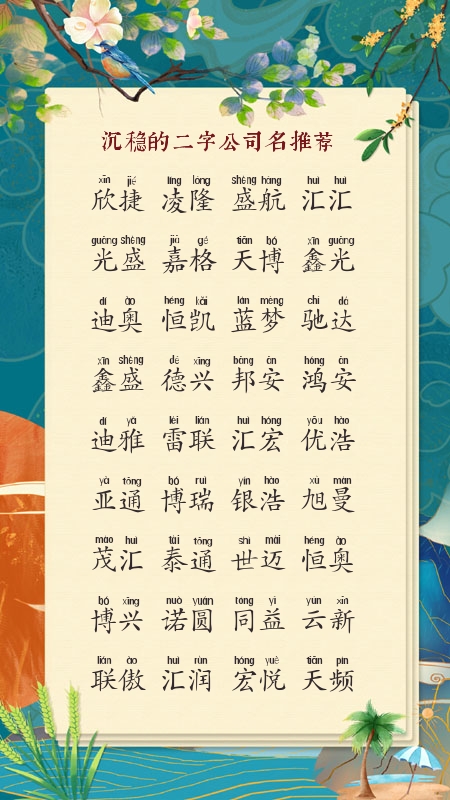 沉稳的二字公司名推荐
xīn jié líng lóng shèng háng huì huì
欣捷 凌隆 盛航 汇汇
guāng shèng jiā gé tiān bó xīn guāng
光盛 嘉格 天博 鑫光
dí ào héng kǎi lán mèng chí dá
迪奥 恒凯 蓝梦 驰达
xīn shèng dé xīng bāng ān hóng ān
鑫盛 德兴 邦安 鸿安
dí yǎ léi lián huì hóng yōu hào
迪雅 雷联 汇宏 优浩
yà tōng bó ruì yín hào xù màn
亚通 博瑞 银浩 旭曼
mào huì tài tōng shì mài héng ào
茂汇 泰通 世迈 恒奥
bó xīng nuò yuán tóng yì yún xīn
博兴 诺圆 同益 云新
lián ào huì rùn hóng yuè tiān pín
联傲 汇润 宏悦 天频